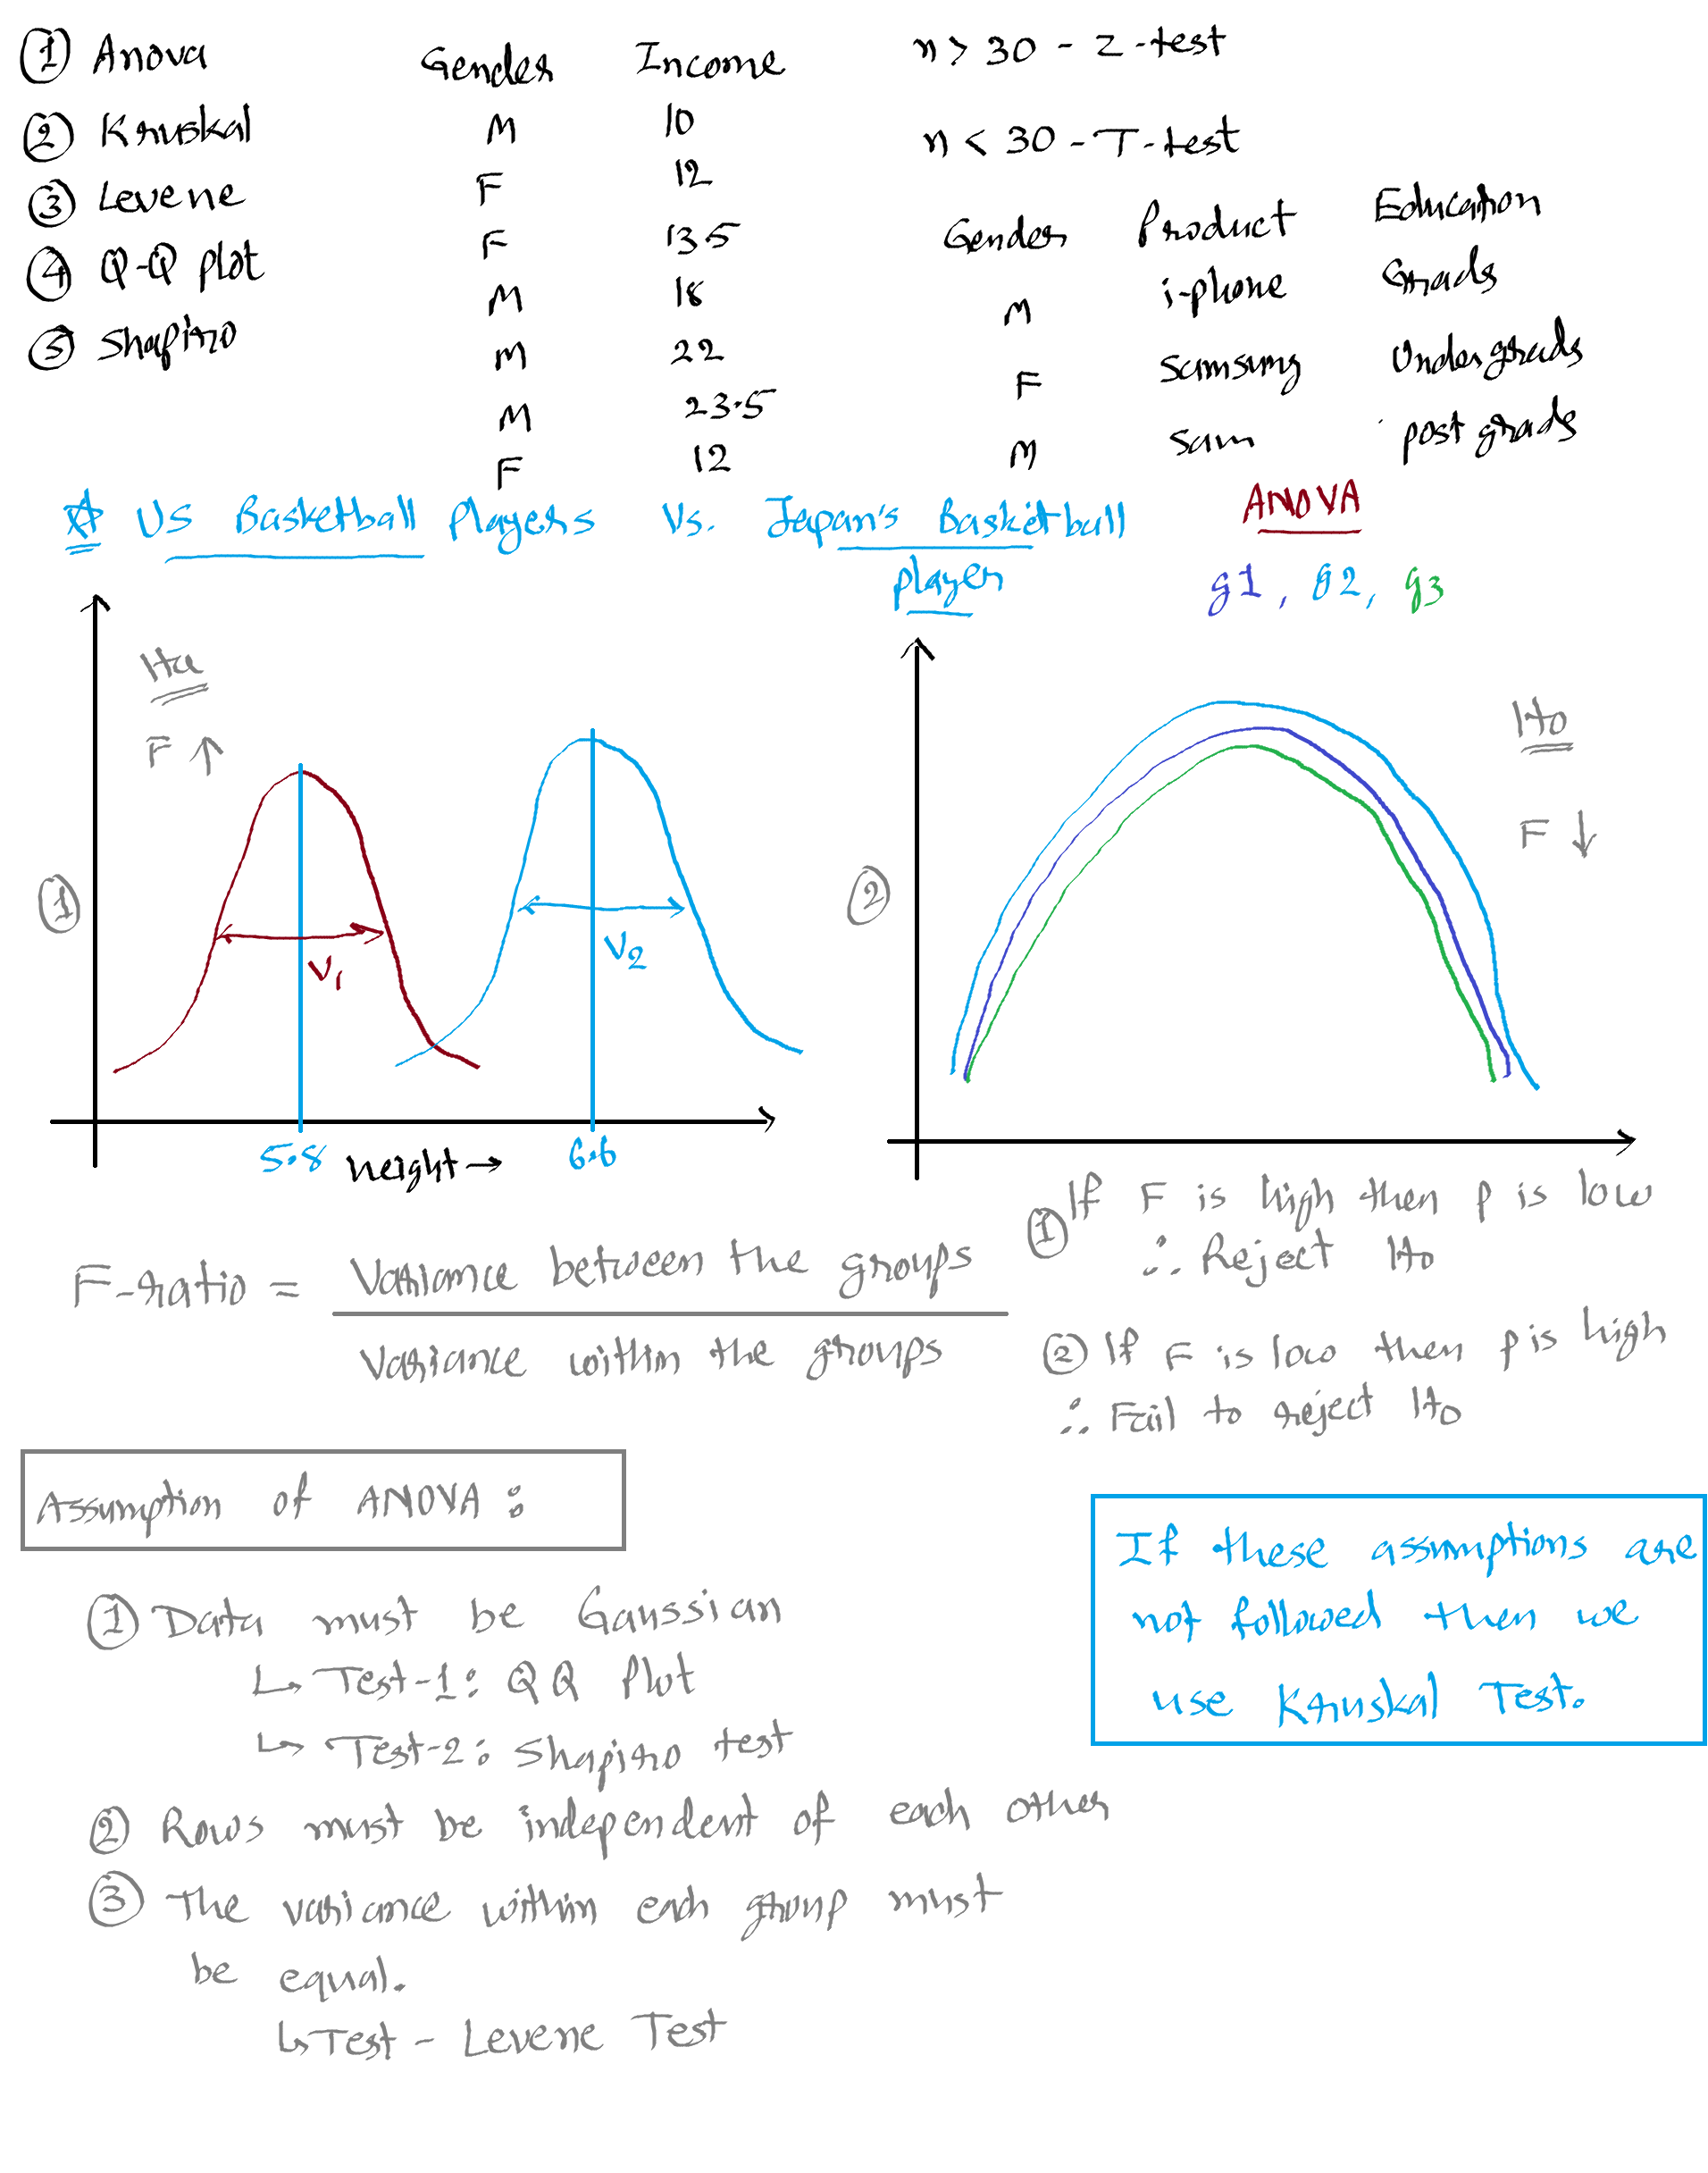 ① Anova
② Kruskal
③ Levene
④ Q-Q plot
⑤ Shapiro
Gender Income
M 10
F 12
F 13.5
M 18
M 22
M 23.5
F 12
n > 30 - Z-test
n < 30 - T-test
Gender Product Education
M i-phone Grads
F Samsung Undergrads
M Sam post grads
US Basketball Players Vs. Japan's Basketball
player
ANOVA
g1, g2, g3
Ha
F ↑
①
V1
V2
5.8 height → 6.6
H0
F ↓
②
F-ratio = Variance between the groups
Variance within the groups
① If F is high then p is low
∴ Reject H0
② If F is low then p is high
∴ Fail to reject H0
Assumption of ANOVA :
① Data must be Gaussian
↳ Test-1: QQ Plot
↳ Test-2: Shapiro test
② Rows must be independent of each other
③ The variance within each group must
be equal.
↳ Test - Levene Test
If these assumptions are
not followed then we
use Kruskal Test.